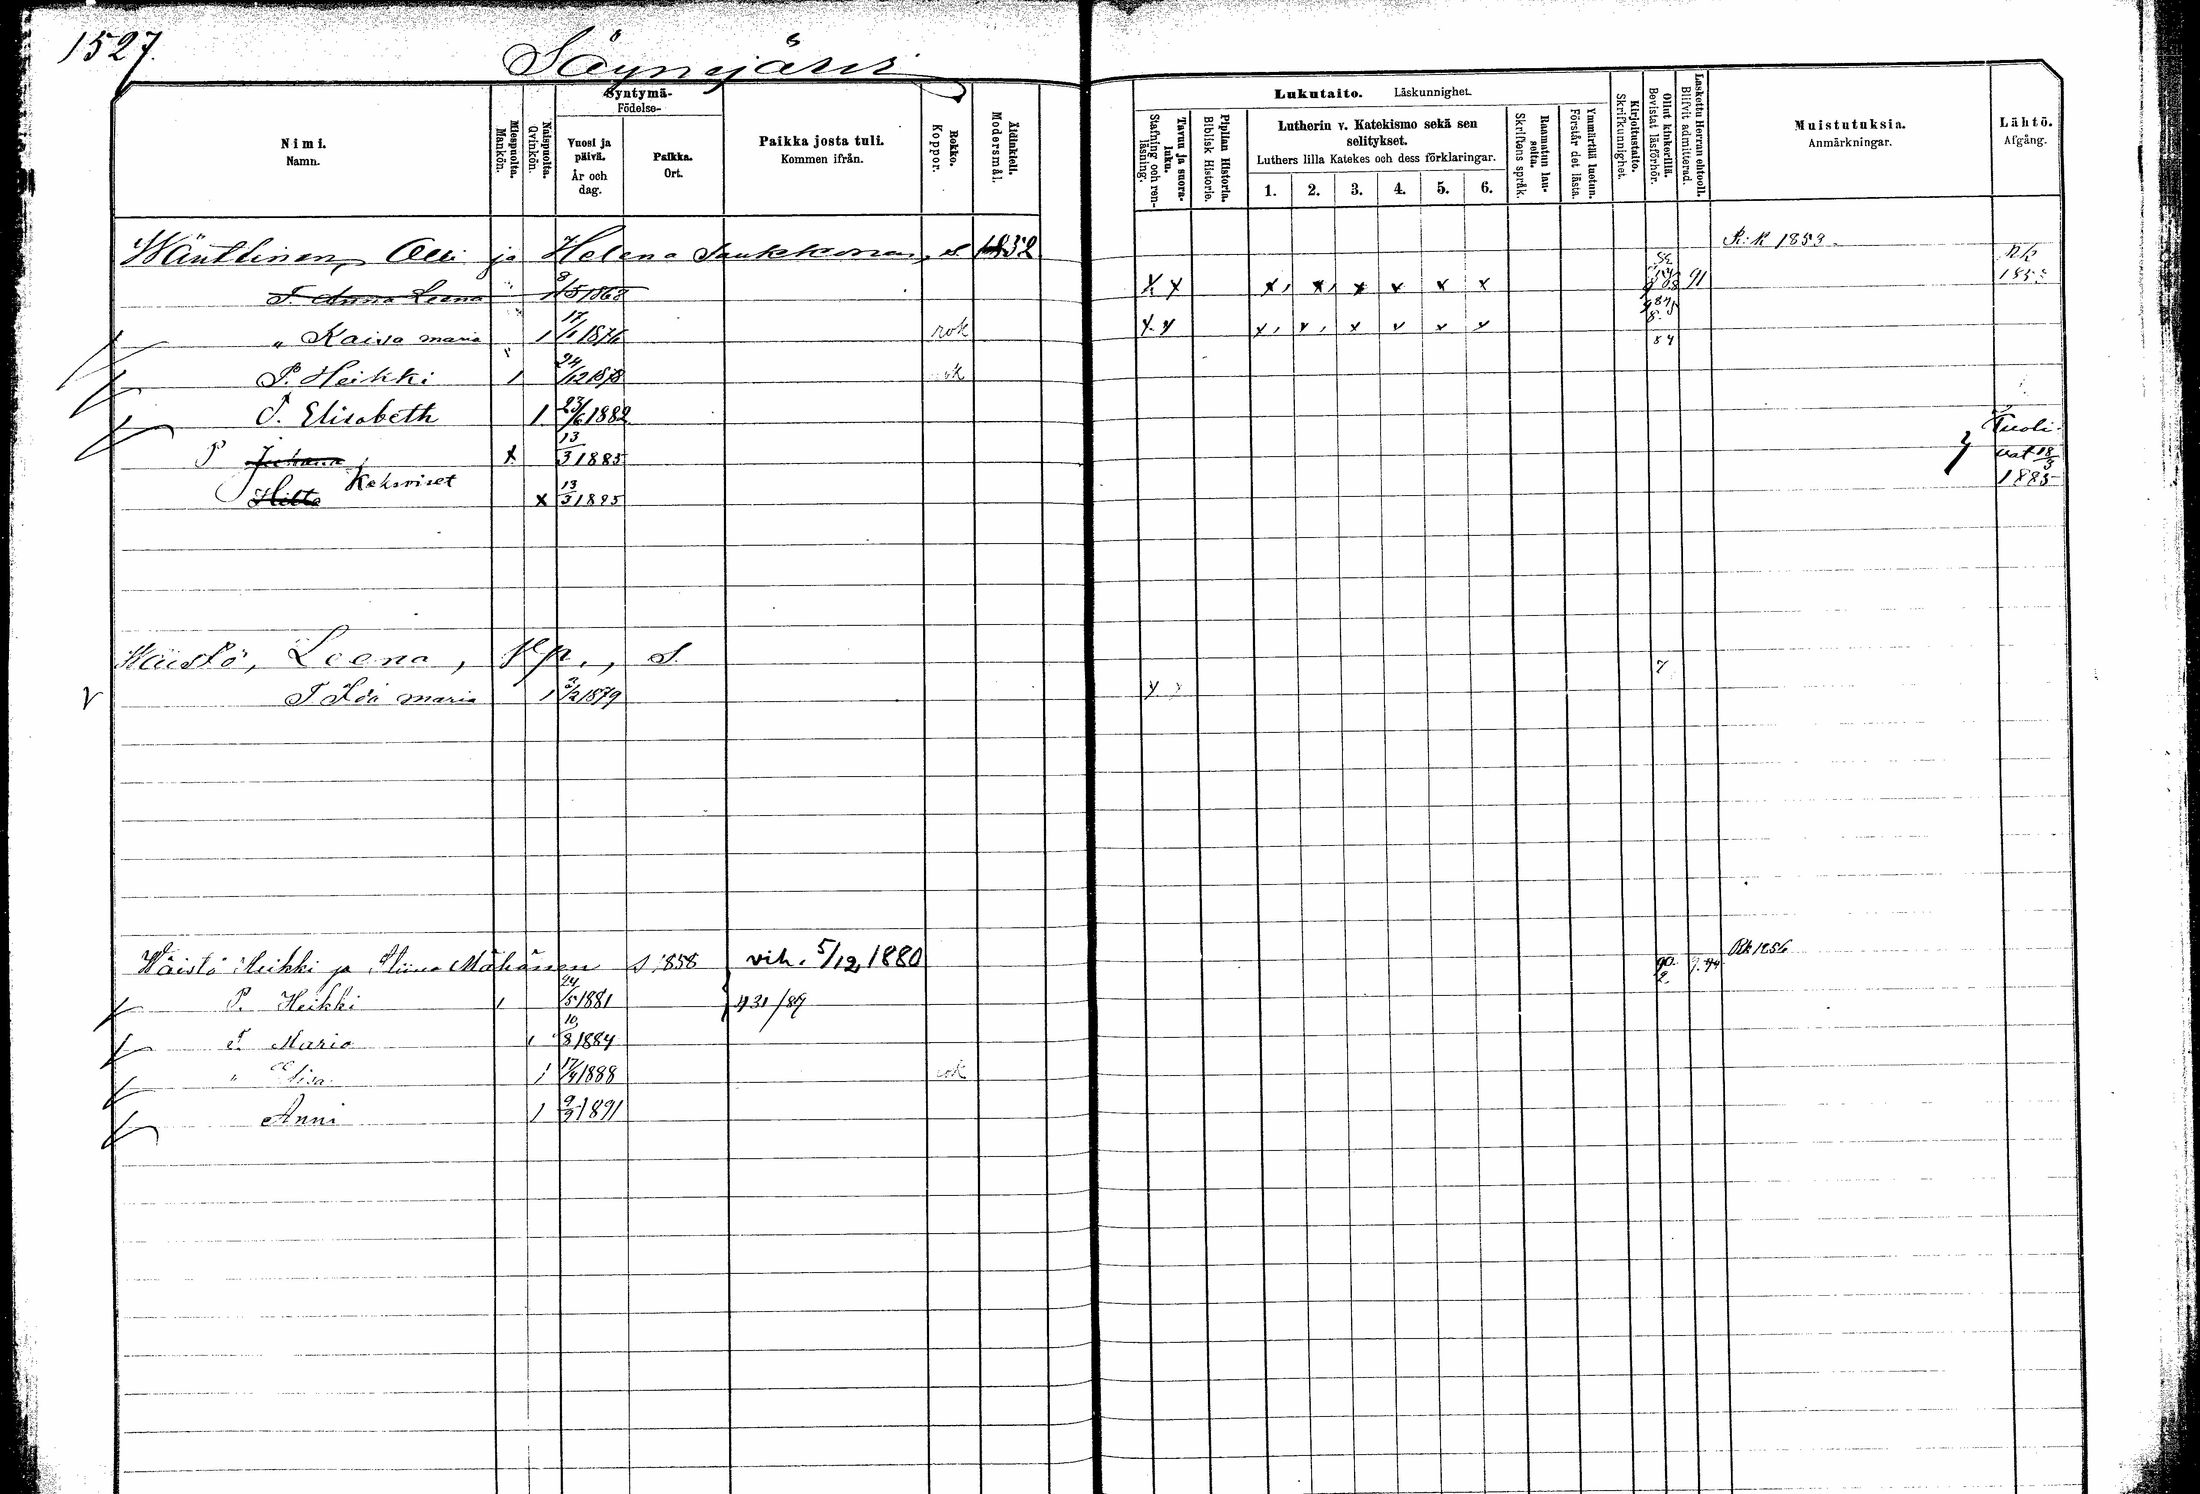 1527.
Säynejärvi
Syntymä-
Födelse-
Nimi.
Namn.
Miespuolia.
Mankön.
Naispuolia.
Qvinkön.
Vuosi ja päivä.
År och dag.
Paikka.
Ort.
Paikka josta tuli.
Kommen ifrån.
Rokko.
Koppor.
Äidinkieli.
Modersmål.
Lukutaito. Läskunnighet.
Tavuu ja suora-luku.
Stafning och ren-läsning.
Piplian Historia.
Biblisk Historie.
Lutherin v. Katekismo sekä sen
selitykset.
Luthers lilla Katekes och dess förklaringar.
1. 2. 3. 4. 5. 6.
Raamatun lau-seita.
Skriftens språk.
Ymmärtää luetun.
Förstår det lästa.
Kirjoitustaito.
Skrifkunnighet.
Ollut kinkerillä.
Bevistat läsförhör.
Laskettu Herran ehtooll.
Blifvit admitterad.
Muistutuksia.
Anmärkningar.
Lähtö.
Afgång.
Wänttinen, Olli ja Helena Saukkonen, s. 1832 R:k 1853
T. Anna Leena 8/5 1868 x x x x x x x x 91
" Kaisa maria 1 17/1 1876 rok x x x x x x x x 84
P. Heikki 1 24/12 1878 rok
T. Elisabeth 1 23/6 1882
P Juhana x 13/3 1885 Kuoli-
Kaksoiset vat 18/3
Hilta x 13/3 1885 1885
Wäistö, Leena, Np., S. 7
T Ida maria 1 3/2 1879
Wäistö Heikki ja Stiina Mähönen S 1858 vih. 5/12 1880 90 Rk 1856
P. Heikki 1 24/5 1881 431/89
T. Maria 1 10/8 1884
" Elisa 1 17/4 1888 rok
Anni 1 9/3 1891